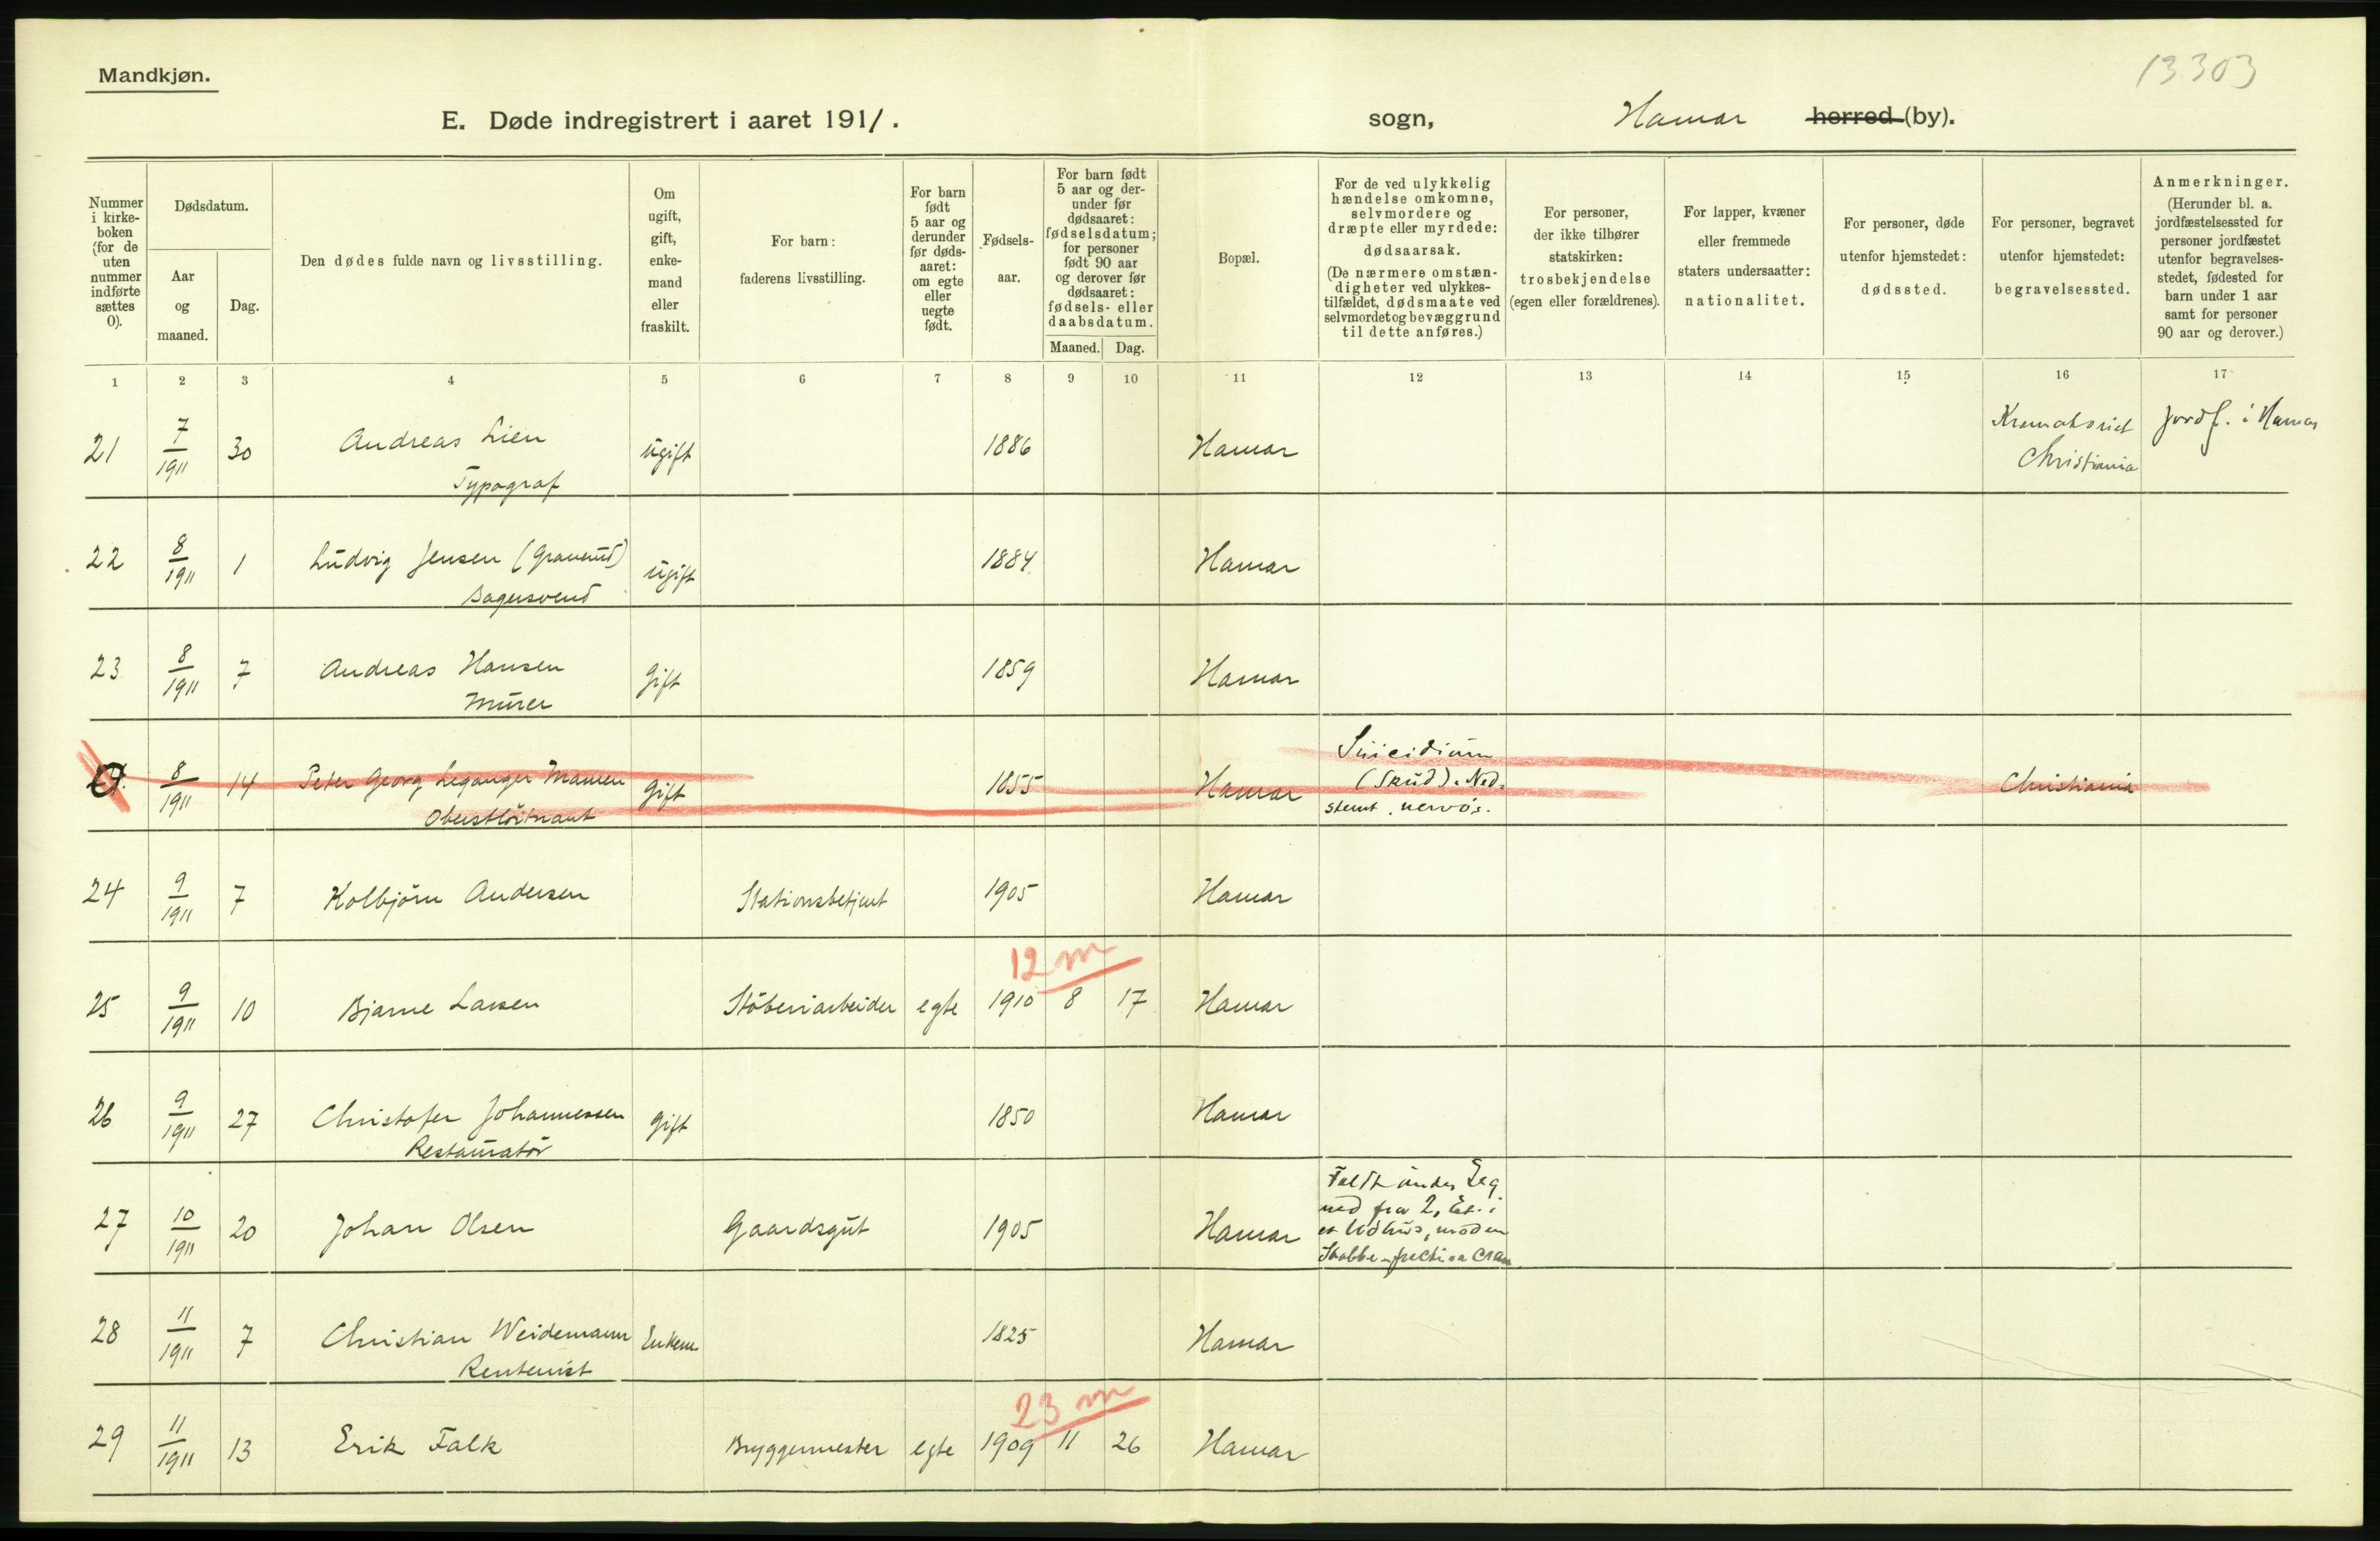 Mandkjøn.
13303
E. Døde indregistrert i aaret 1911.
sogn, Hamar herred (by).
Nummer i kirke-boken (for de uten nummer indførte sættes 0).
Dødsdatum.
Aar og maaned.
Dag.
Den dødes fulde navn og livsstilling.
Om ugift, gift, enke-mand eller fraskilt.
For barn: faderens livsstilling.
For barn født 5 aar og derunder før døds-aaret: om egte eller uegte født.
Fødsels-aar.
For barn født 5 aar og der-under før dødsaaret: fødselsdatum; for personer født 90 aar og derover før dødsaaret: fødsels- eller daabsdatum.
Maaned. Dag.
Bopæl.
For de ved ulykkelig hændelse omkomne, selvmordere og dræpte eller myrdede: dødsaarsak. (De nærmere omstæn-digheter ved ulykkes-tilfældet, dødsmaate ved selvmordet og bevæggrund til dette anføres.)
For personer, der ikke tilhører statskirken: trosbekjendelse (egen eller forældrenes).
For lapper, kvæner eller fremmede staters undersaatter: nationalitet.
For personer, døde utenfor hjemstedet: dødssted.
For personer, begravet utenfor hjemstedet: begravelsessted.
Anmerkninger. (Herunder bl. a. jordfæstelsessted for personer jordfæstet utenfor begravelses-stedet, fødested for barn under 1 aar samt for personer 90 aar og derover.)
1 2 3 4 5 6 7 8 9 10 11 12 13 14 15 16 17
21 7/1911 30 Andreas Lien ugift 1886 Hamar Krematoriet jordf. i Hamar
Typograf Christiania
22 8/1911 1 Ludvig Jensen (Graverud) ugift 1884 Hamar
Bagersvend
23 8/1911 7 Andreas Hansen gift 1859 Hamar
Murer
8/1911 14 Peter Georg Leganger Mamen gift 1855 Hamar Suicidium (Skud). Ned- Christiania
Oberstløitnant stemt, nervøs.
24 9/1911 7 Kolbjörn Andersen Stationsbetjent 1905 Hamar
12 m
25 9/1911 10 Bjarne Larsen Stöberiarbeider egte 1910 8 17 Hamar
26 9/1911 27 Christofer Johannessen gift 1850 Hamar
Restauratör
27 10/1911 20 Johan Olsen Gaardsgut 1905 Hamar Faldt under Leg
ned fra 2. Et. i
et Udhus, mod en
Stabbe
28 11/1911 7 Christian Weidemann Enkem 1825 Hamar
Rentenist
23 m
29 11/1911 13 Erik Falk Bryggermester egte 1909 11 26 Hamar